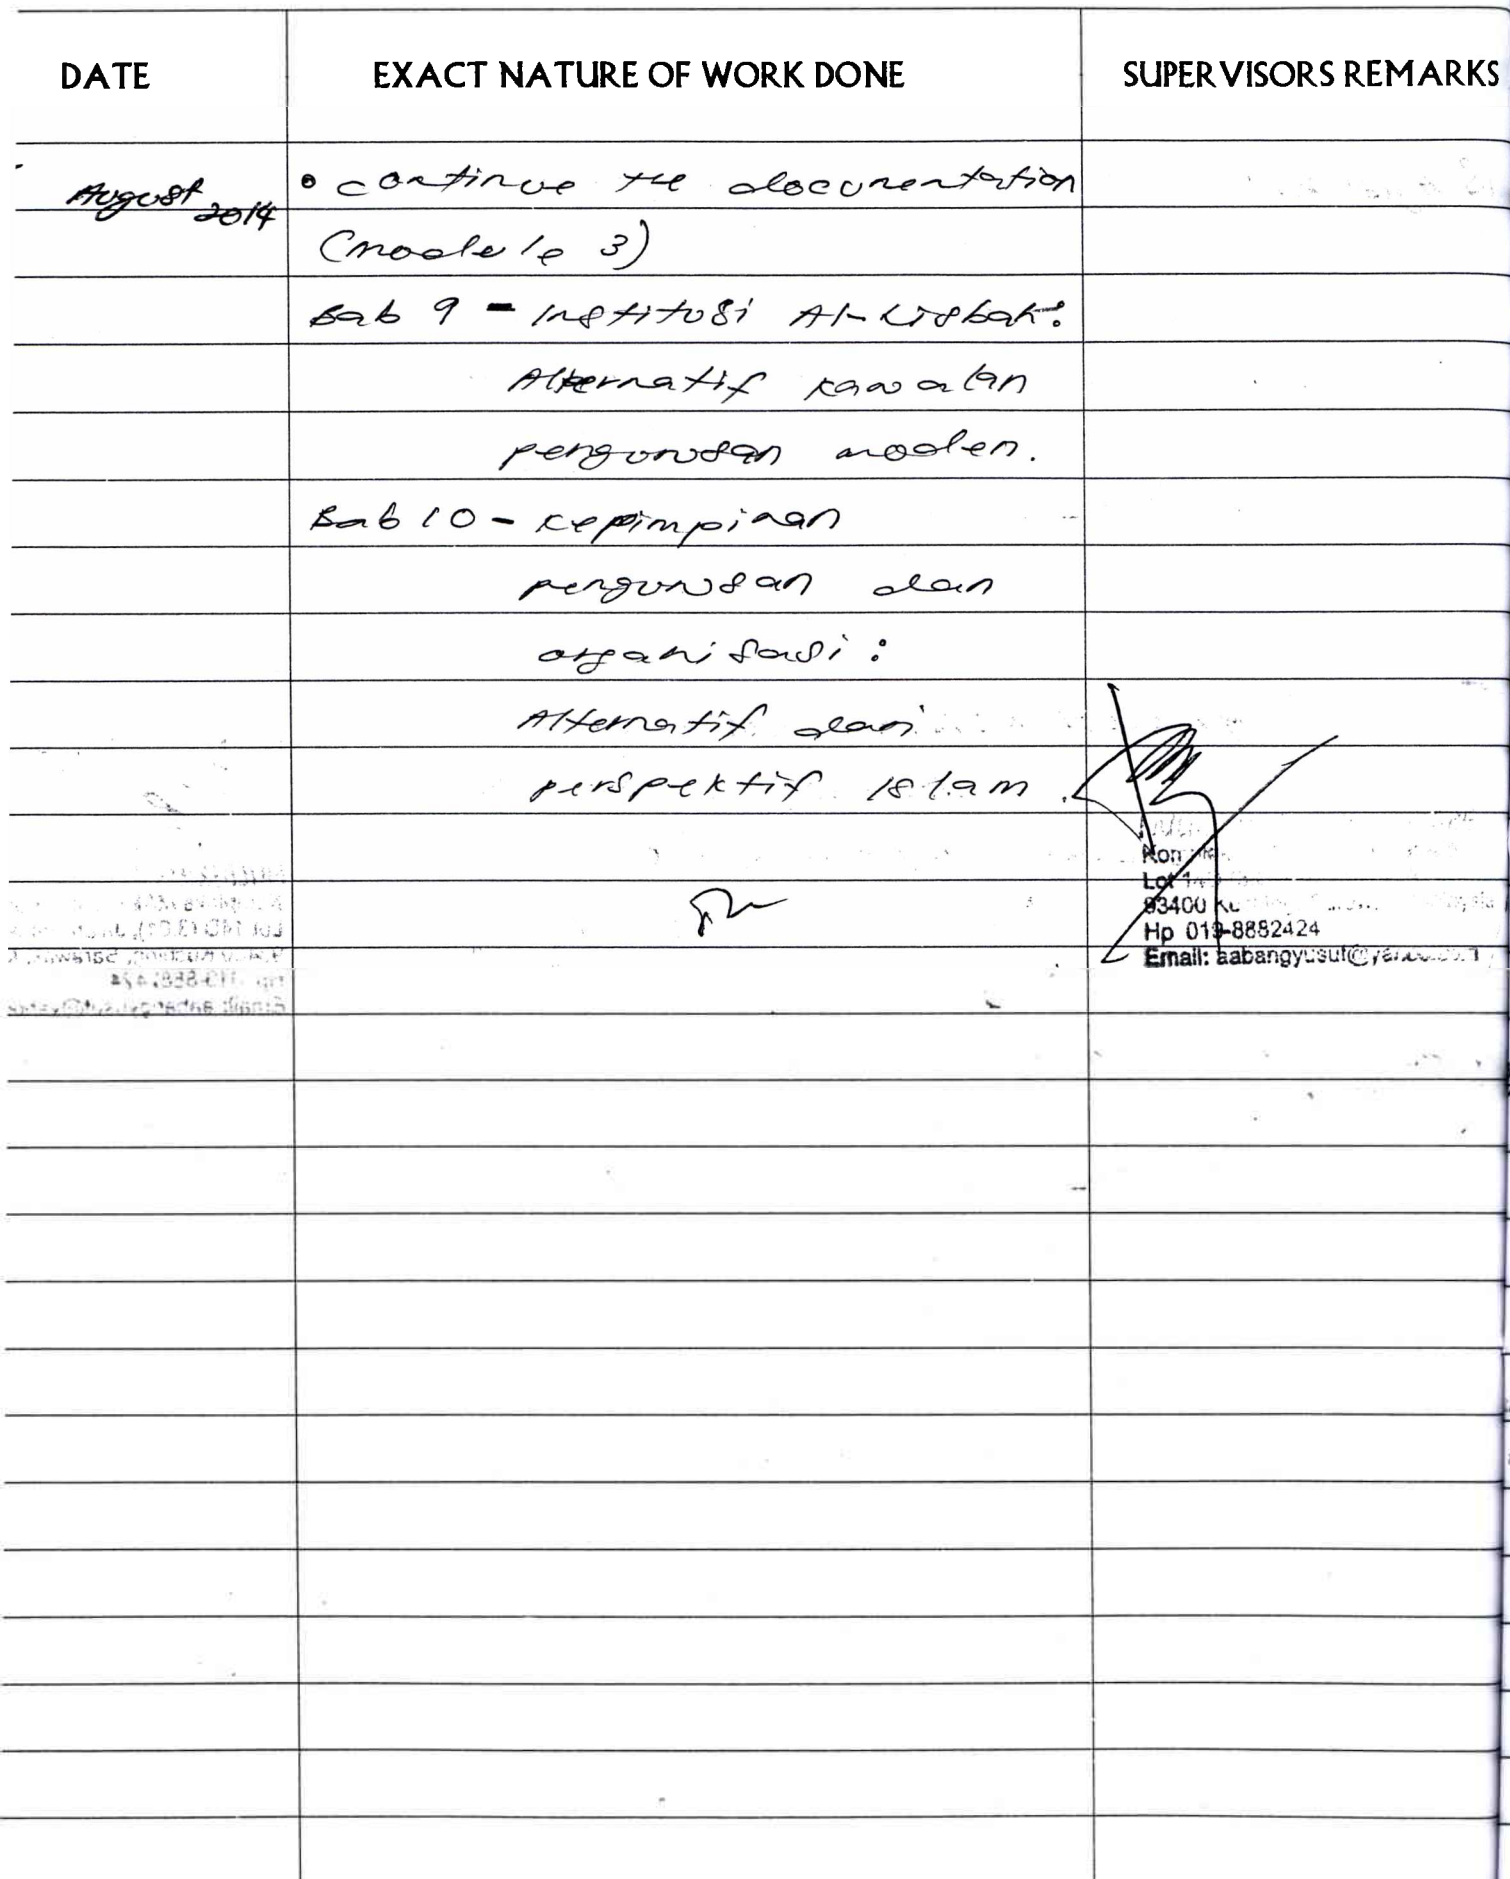 DATE EXACT NATURE OF WORK DONE SUPERVISORS REMARKS
August 2014 • continue the documentation
(module 3)
Bab 9 - Institusi Al-Hisbah:
Alternatif kawalan
pengurusan moden.
Bab 10 - kepimpinan
pengurusan dan
organisasi:
Alternatif dari
perspektif Islam.
Lot
93400
Hp 019-8882424
Email: aabangyusuf@yahoo.com